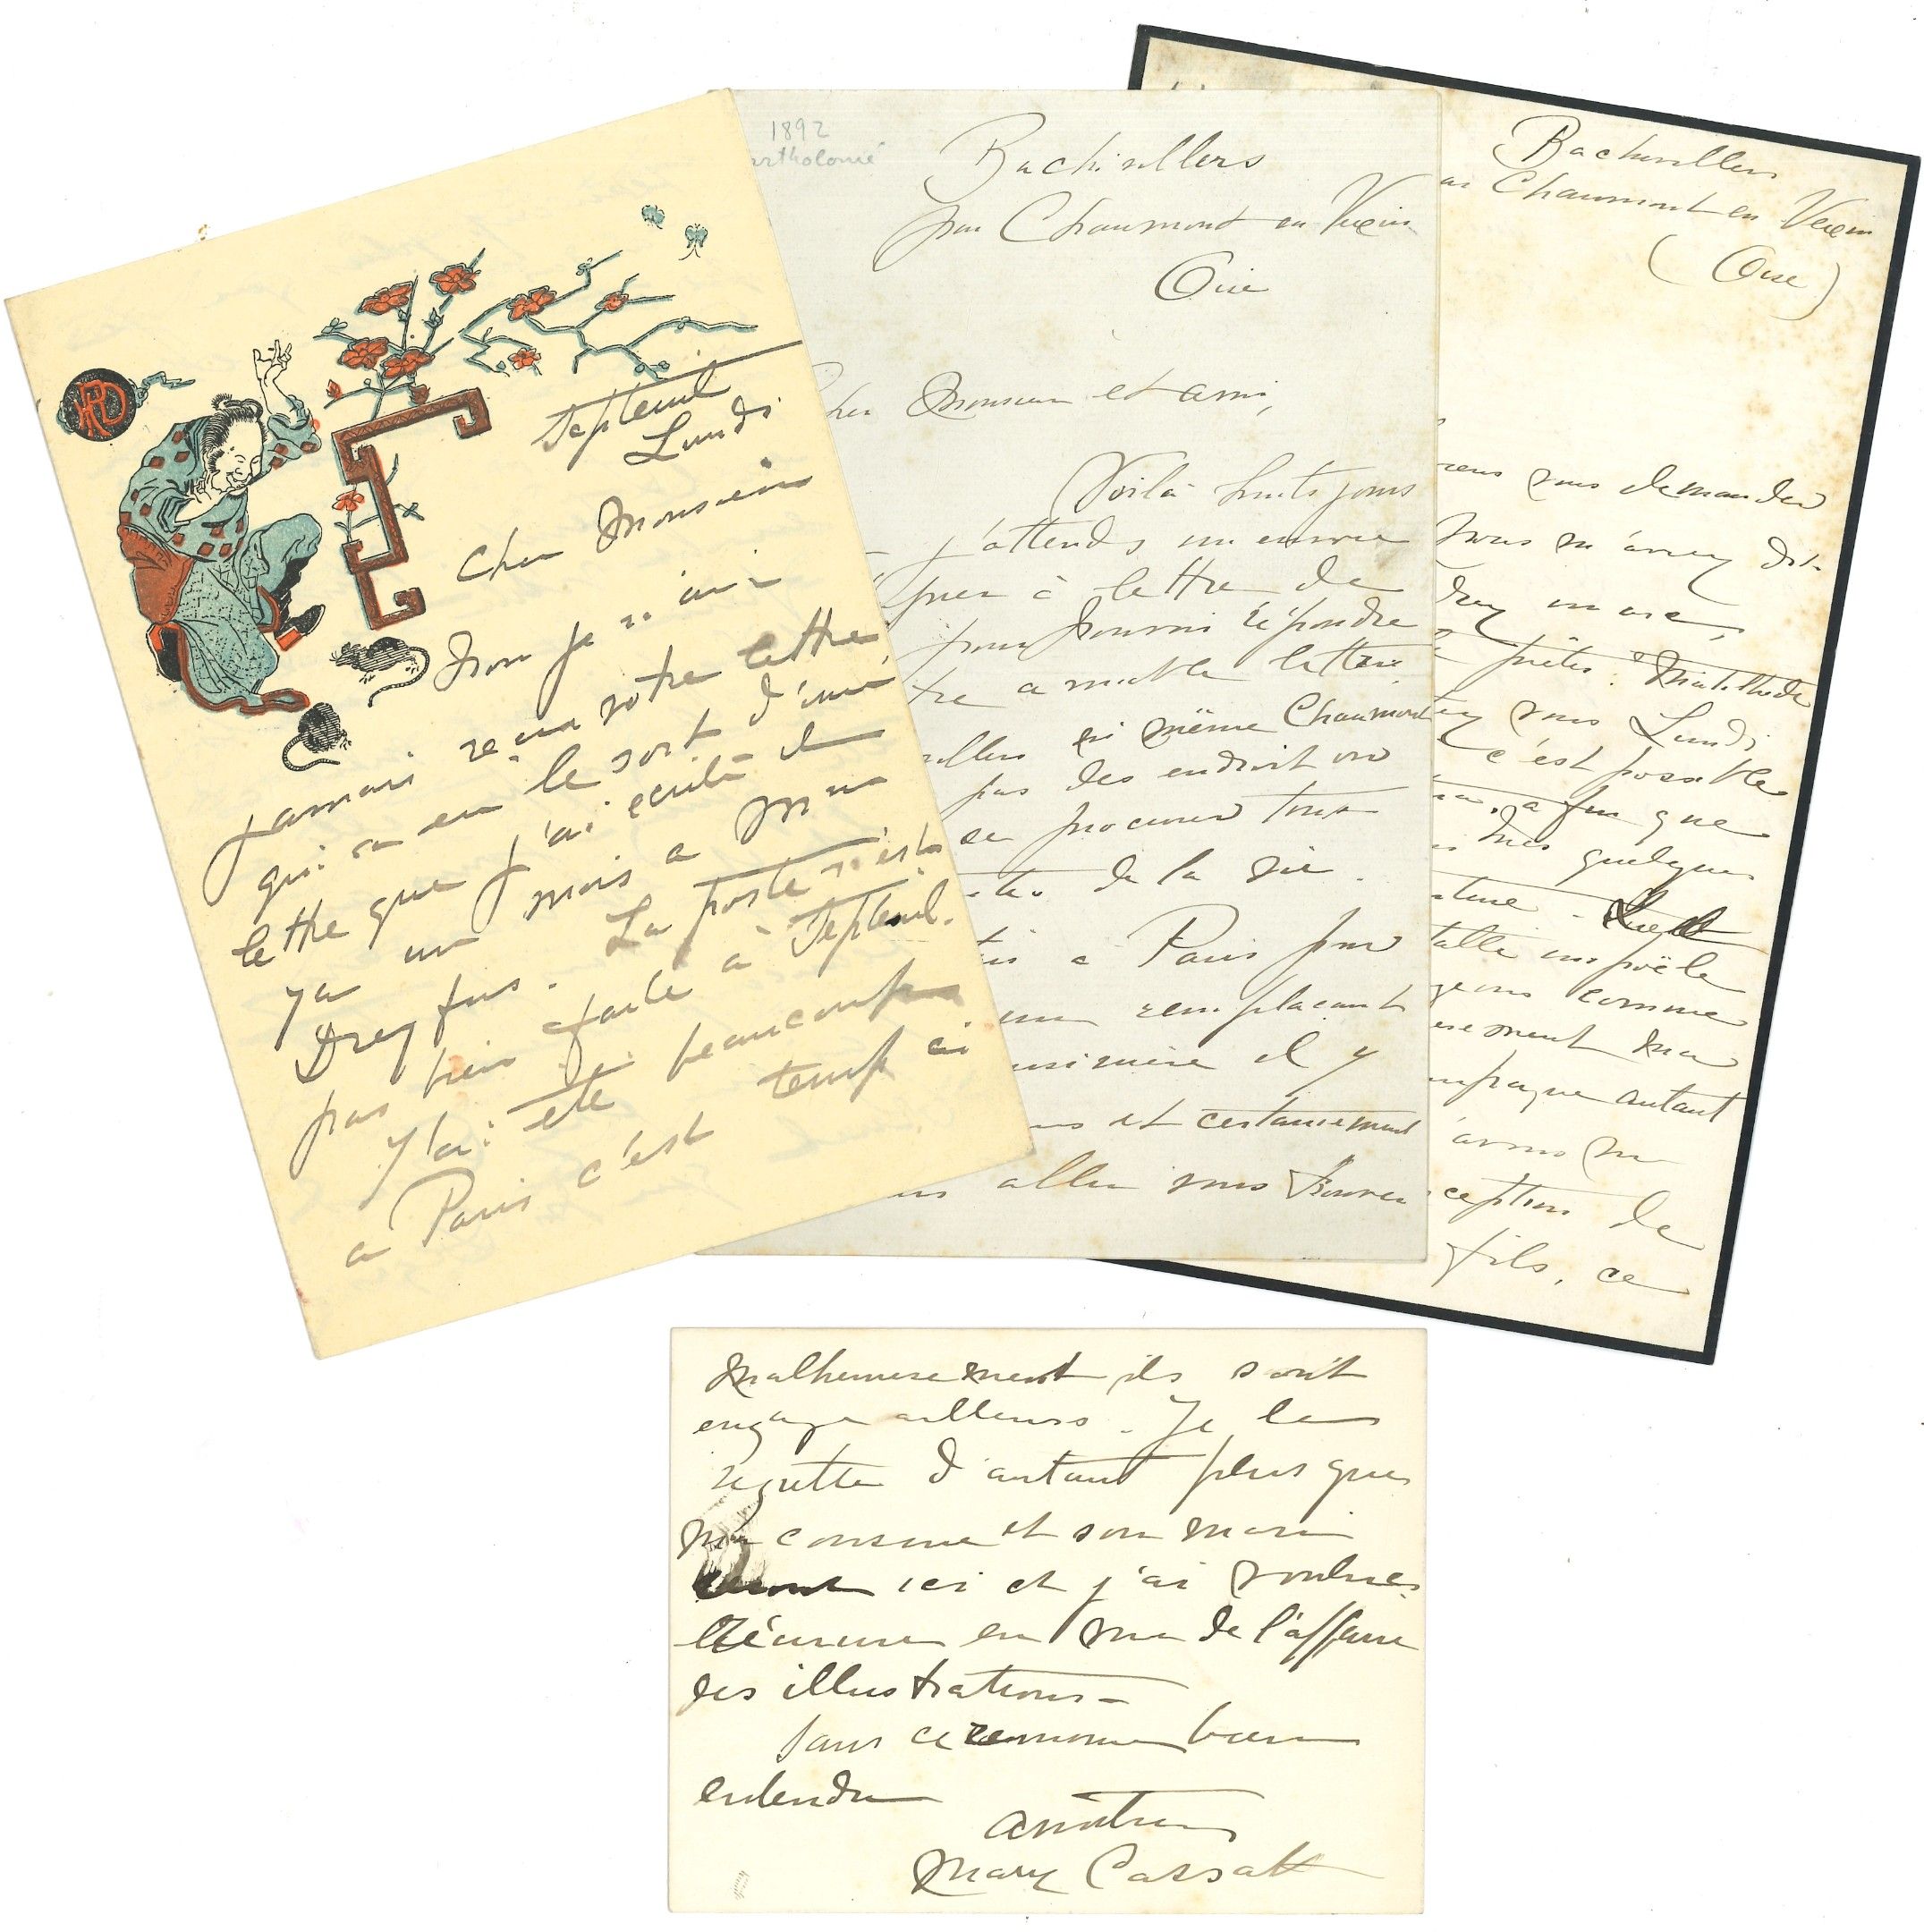 Septeuil
Lundi
Cher Monsieur
Non je n'ai
jamais reçu votre lettre
qui a eu le sort d'une
lettre que j'ai écrite il
y a un mois a Mme
Dreyfus. La poste n'est
pas bien faite à Septeuil.
J'ai été beaucoup
a Paris c'est temps ci
1892
artholomé
Bachivillers
par Chaumont en Vexin
Oise
Cher Monsieur et ami,
Voilà huits jours
j'attends un envoie
papier à lettre de
pour pouvoir répondre
tre aimable lettre.
villers ni même Chaumont
pas des endroit ou
se procurer tous
de la vie.
à Paris pour
un remplacant
cuisinière il y
et certainement
aller vous trouver
Bachivillers
par Chaumont en Vexin
(Oise)
viens vous demander
vous m'avez dit
un ase,
prêter. Mathilde
vous Lundi
c'est possible
a fin que
mes quelques
tallé un poële
comme
ment ma
campagne autant
avons
ception de
fils, ce
Malheureusement ils sont
engagé ailleurs. Je le
regrette d'autant plus que
ma cousine et son mari
seront ici et j'ai voulu les
réunir en vue de l'affaire
des illustrations-
Sans ceremonie bien
entendu
amitiés
Mary Cassatt